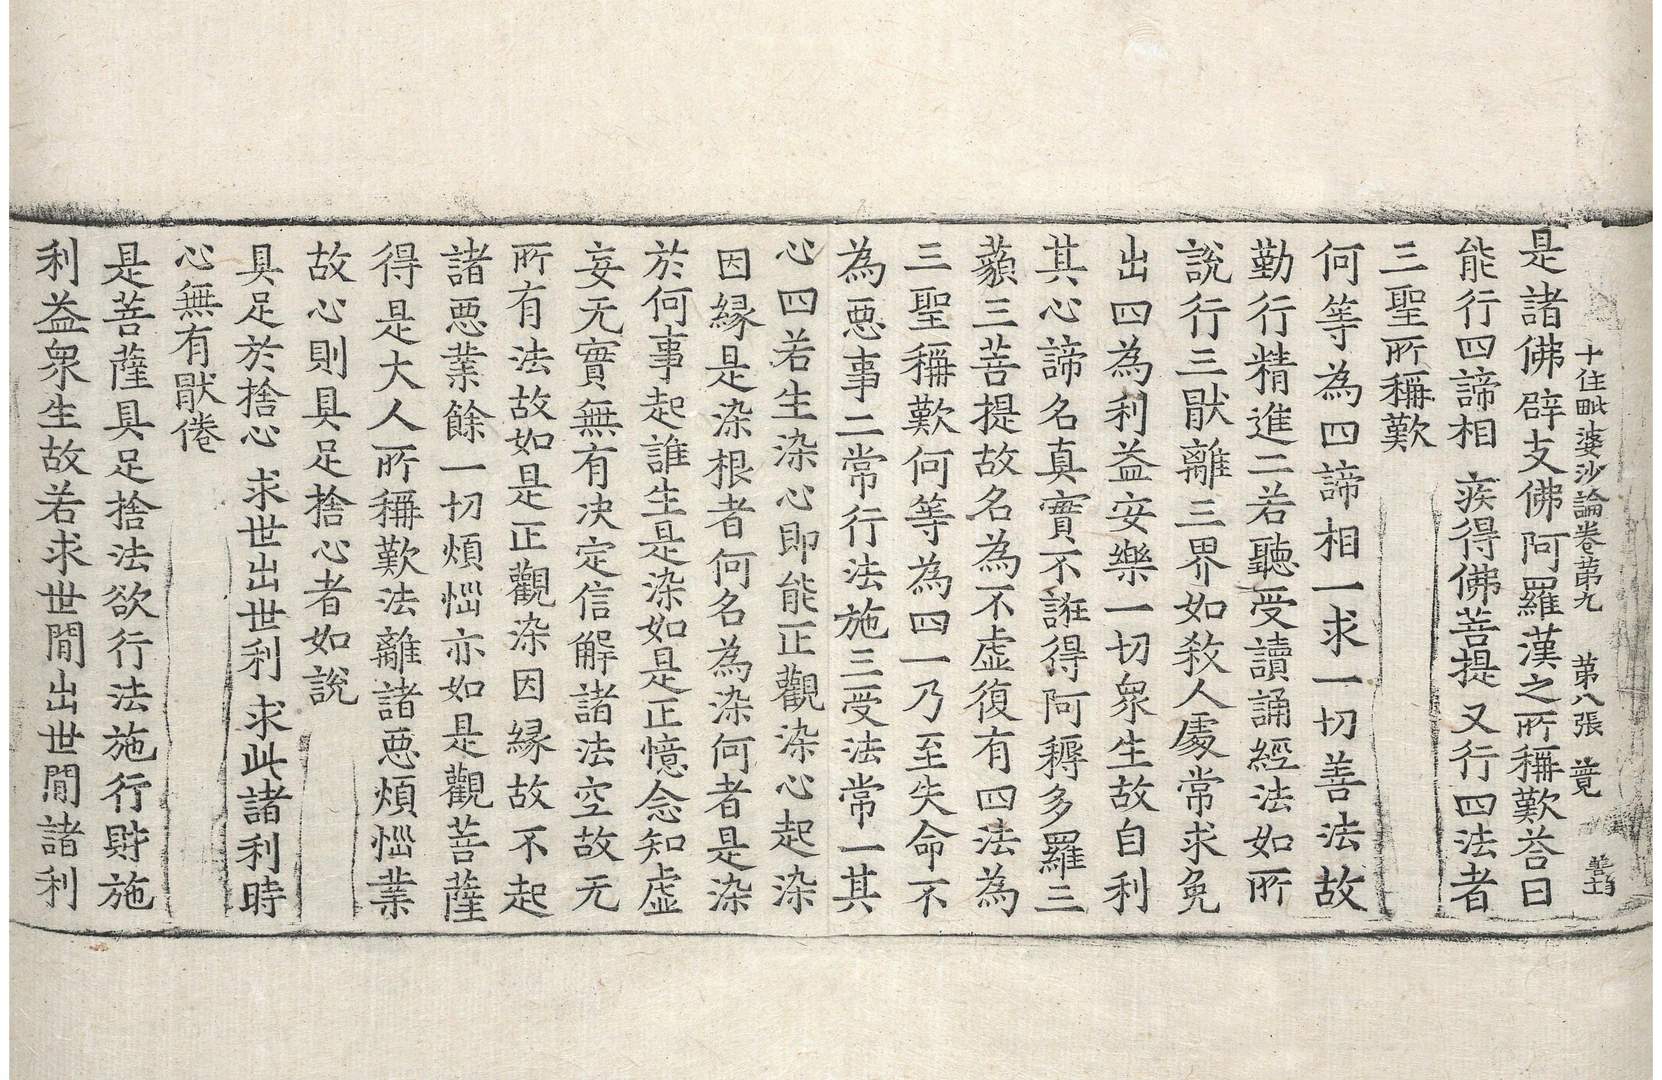 十住毗婆沙論卷苐九 苐八張 萛
是諸佛辟支佛阿羅漢之所稱歎荅曰
能行四諦相 疾得佛菩提 又行四法者
三聖所稱歎
何等為四諦相一求一切善法故
勤行精進二若聽受讀誦經法如所
說行三猒離三界如敎人處常求免
出四為利益安樂一切衆生故自利
其心諦名真實不誑得阿耨多羅三
藐三菩提故名為不虛復有四法為
三聖稱歎何等為四一乃至失命不
為惡事二常行法施三受法常一其
心四若生染心即能正觀染心起染
因緣是染根者何名為染何者是染
於何事起誰生是染如是正憶念知虛
妄无實無有决定信解諸法空故无
所有法故如是正觀染因緣故不起
諸惡業餘一切煩惱亦如是觀菩薩
得是大人所稱歎法離諸惡煩惱業
故心則具足捨心者如說
具足於捨心 求世出世利 求此諸利時
心無有猒倦
是菩薩具足捨法欲行法施行財施
利益衆生故若求世閒出世閒諸利